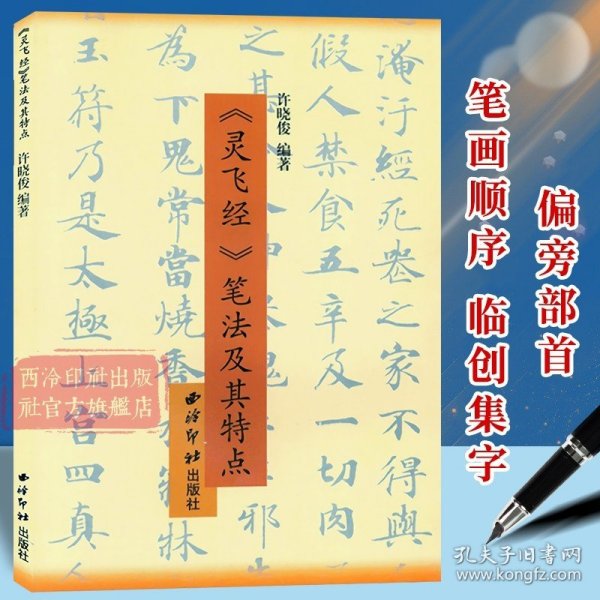 偏旁部首
笔画顺序 临创集字
《灵飞经》笔法及其特点
许晓俊 编著
西泠印社出版社
许晓俊 编著
《灵飞经》笔法及其特点
西泠印社
出版社
淹汙經死喪之家不得與
假人禁食五辛及一切肉
之其
邪
為下鬼常當燒香
玉符乃是太極上宮四真
西泠印社出版
社官方旗艦店
孔夫子旧书网
www.kongfz.com